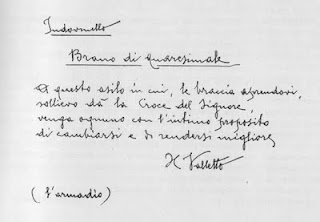 Indovinello
Brano di Quaresimale
A questo asilo in cui, le braccia aprendovi,
sollievo dà la Croce del Signore,
venga ognuno con l'intimo proposito
di cambiarsi e di rendersi migliore.
Il Valletto
(l'armadio)